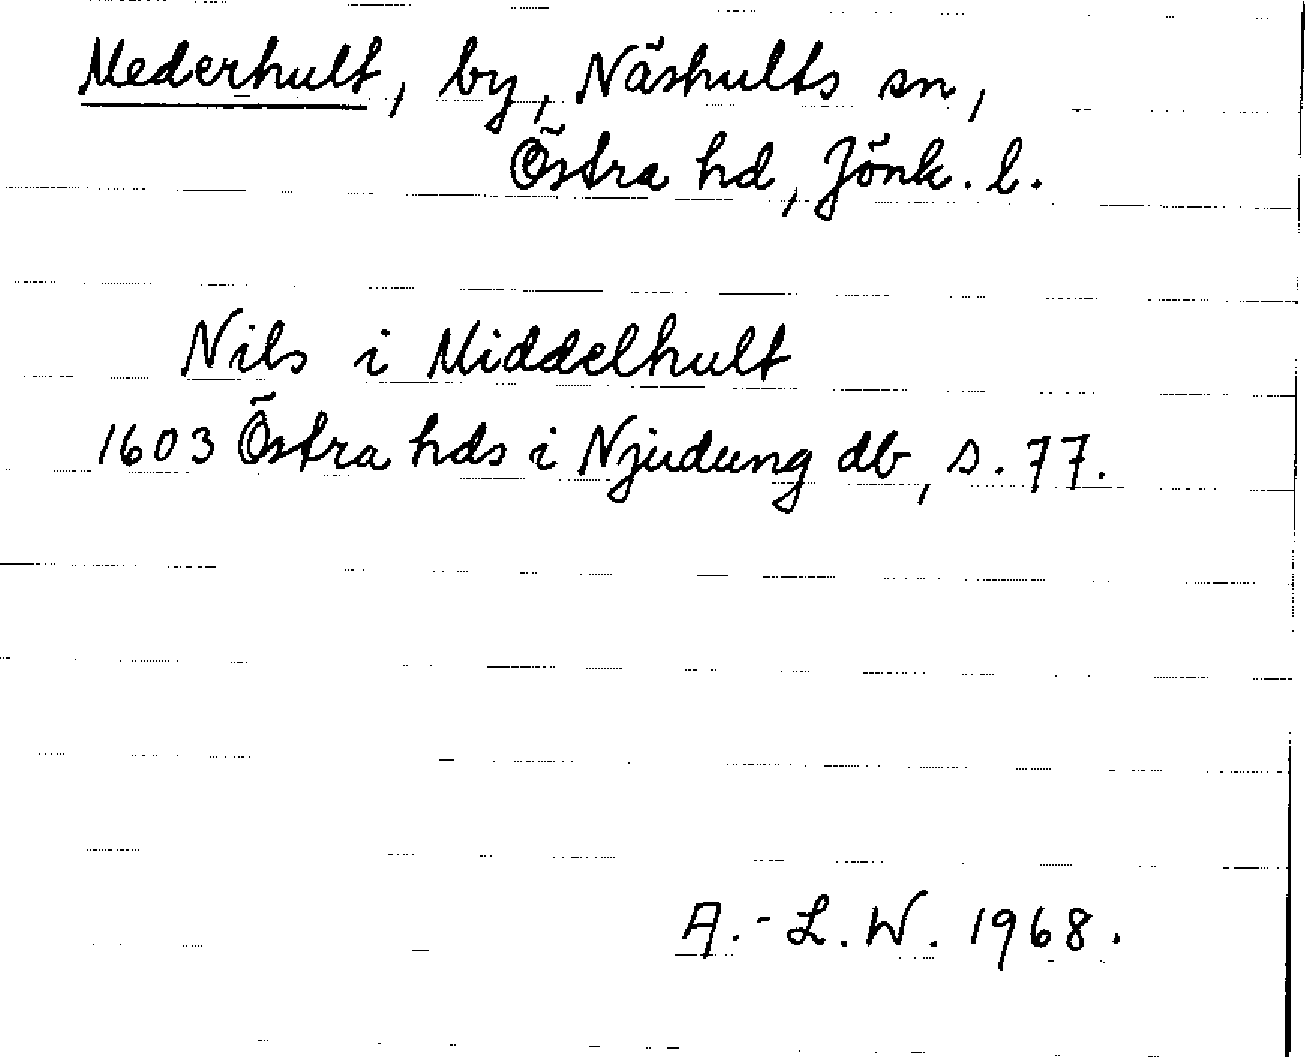 Mederhult, by, Näshults sn,
Östra hd, Jönk. l.
Nils i Middelhult
1603 Östra hds i Njudung db, s. 77.
A.-L.W. 1968.